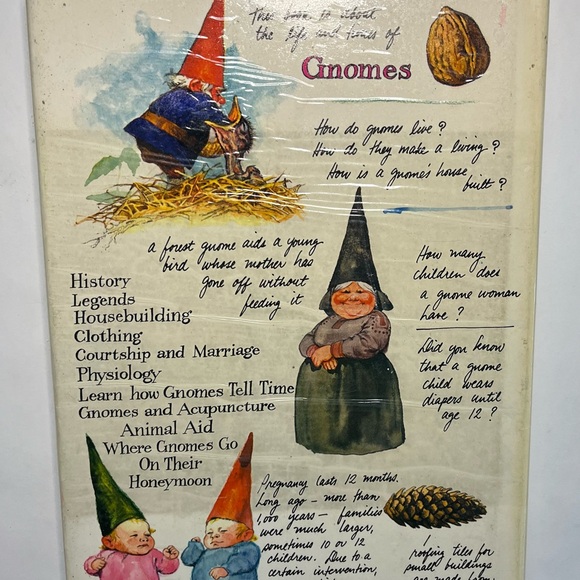 This book is about
the life and times of
Gnomes
How do gnomes live?
How do they make a living?
How is a gnome's house
built?
a forest gnome aids a young
bird whose mother has
gone off without
feeding it
How many
children does
a gnome woman
have?
Did you know
that a gnome
child wears
diapers until
age 12?
History
Legends
Housebuilding
Clothing
Courtship and Marriage
Physiology
Learn how Gnomes Tell Time
Gnomes and Acupuncture
Animal Aid
Where Gnomes Go
On Their
Honeymoon
Pregnancy lasts 12 months.
Long ago – more than
1,000 years – families
were much larger,
sometimes 10 or 12
children. Due to a
certain intervention,
roofing tiles for
small buildings
are made from